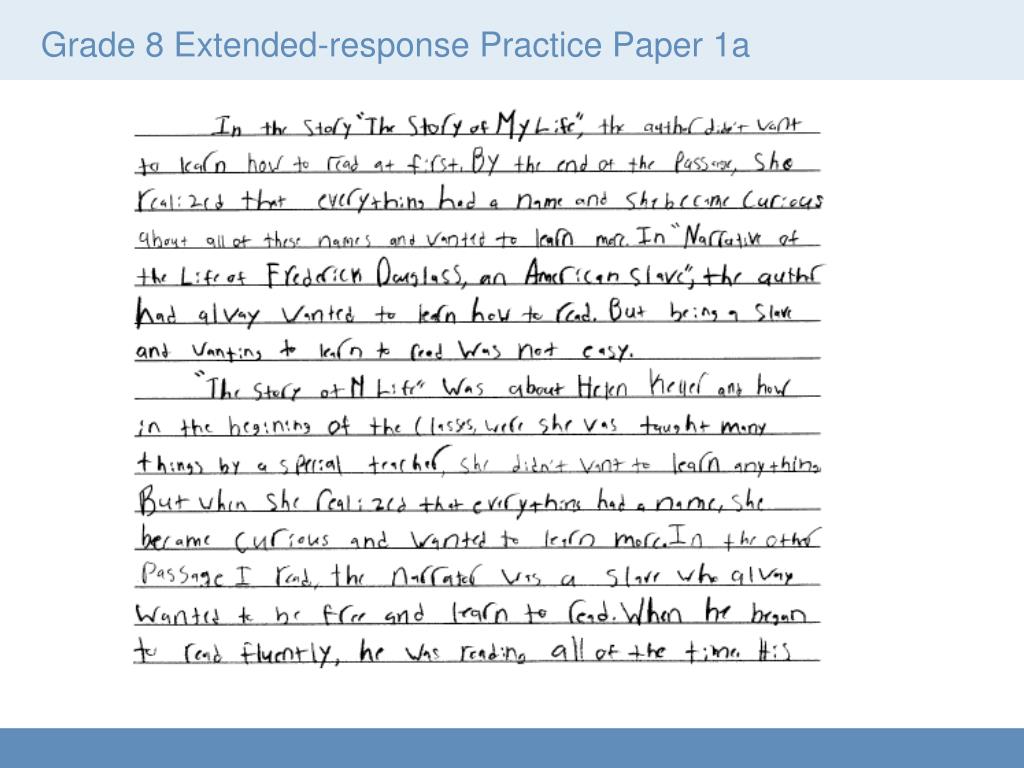 Grade 8 Extended-response Practice Paper 1a
In the Story "The Story of My Life", the author didn't want
to learn how to read at first. By the end of the Passage, She
realized that everything had a name and She became Curious
about all of these names and wanted to learn more. In "Narrative of
the Life of Frederick Douglass, an American Slave", the author
had alway wanted to learn how to read. But being a Slave
and wanting to learn to read was not easy.
"The Story of M Life" Was about Helen Keller and how
in the begining of the Classes, were she was taught many
things by a special teacher, she didn't want to learn anything
But when She realized that everything had a name, she
became Curious and wanted to learn more. In the other
Passage I read, the narrator was a slave who alway
Wanted to be free and learn to read. When he began
to read fluently, he was reading all of the time. His